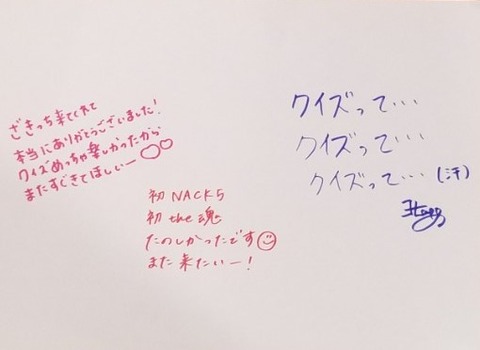 ざきっち来てくれて
本当にありがとうございました!
クイズめっちゃ楽しかったから
またすぐきてほしいー♡♡
初NACK5
初the魂
たのしかったです☺
また来たいー!
クイズって…
クイズって…
クイズって…(汗)